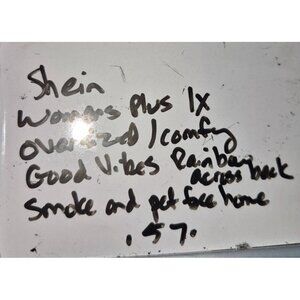 Shein
Womens plus 1x
oversized / comfy
Good Vibes Rainbow
across back
smoke and pet free home
.57.